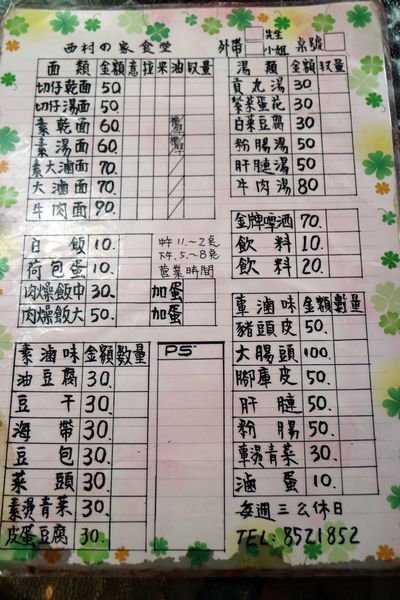 西村の家食堂 外帶 先生 小姐 桌號
面類 金額 意 拉 米 油 数量
切仔乾面 50.
切仔湯面 50
素乾面 60
素湯面 60.
素大滷面 70.
大滷面 70.
牛肉面 90.
湯類 金額 数量
貢丸湯 30
紫菜蛋花 30
白菜豆腐 30
粉腸湯 50
肝腱湯 50
牛肉湯 80
白飯 10.
荷包蛋 10.
肉燥飯中 30. 加蛋
肉燥飯大 50. 加蛋
中午11.~2点
下午.5.~8点
營業時間
金牌啤酒 70.
飲料 10.
飲料 20.
素滷味 金額 數量
油豆腐 30.
豆干 30.
海帶 30.
豆包 30.
菜頭 30.
素燙青菜 30.
皮蛋豆腐 30.
PS
葷滷味 金額 數量
豬頭皮 50.
大腸頭 100.
腳庫皮 50.
肝腱 50.
粉腸 50.
葷燙青菜 30.
滷蛋 10.
每週三公休日
TEL:8521852